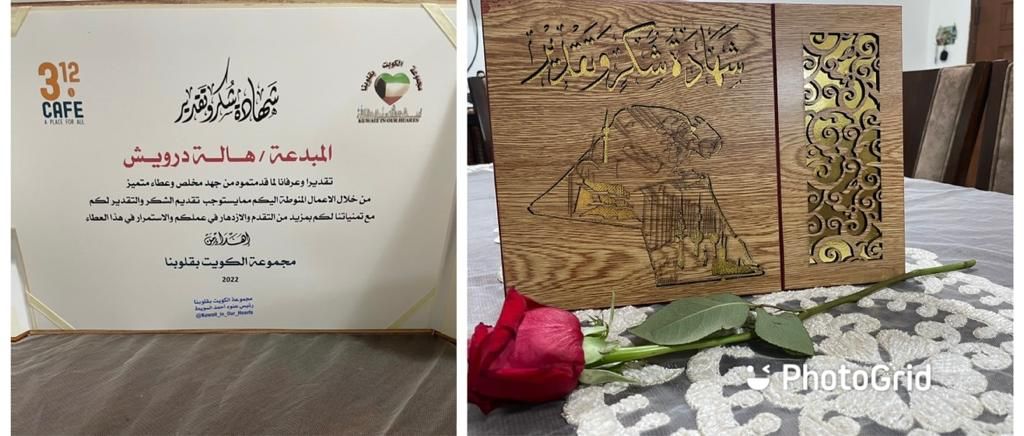 312
CAFE
A PLACE FOR ALL
مجموعة الكويت بقلوبنا
KUWAIT IN OUR HEARTS
شهادة شكر وتقدير
المبدعة / هالة درويش
تقديرا وعرفانا لما قدمتموه من جهد مخلص وعطاء متميز
من خلال الاعمال المنوطة اليكم ممايستوجب تقديم الشكر والتقدير لكم
مع تمنياتنا لكم بمزيد من التقدم والازدهار في عملكم والاستمرار في هذا العطاء
إهداء من
مجموعة الكويت بقلوبنا
2022
مجموعة الكويت بقلوبنا
@Kuwait_In_Our_Hearts
شهادة شكر وتقدير
PhotoGrid